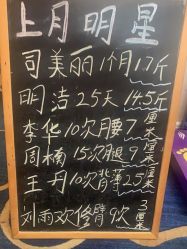 上月明星
司美丽1个月17斤
明洁25天14.5斤
李华10次月腰7厘米
周楠15次腿9厘米
王丹10次背薄2.5厘米
刘雨欢修臂9次3厘米